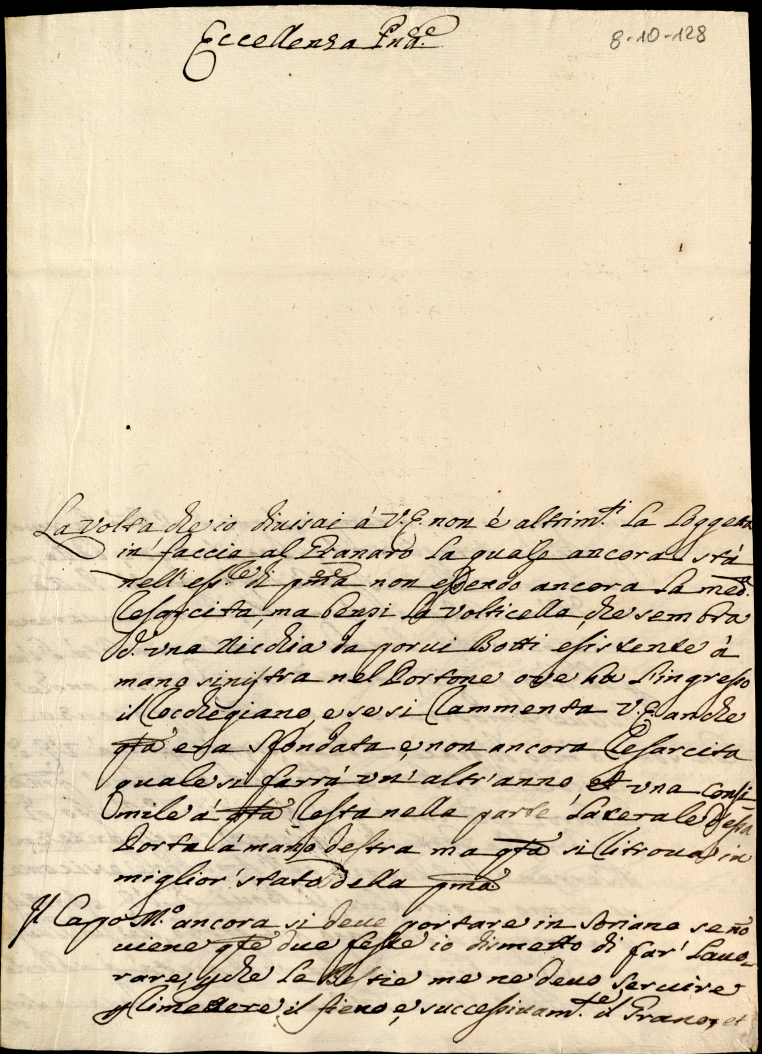 Eccellenza Pnã.e
8-10-128
La volta che io divisai á V.E. non é altrim.ti la loggetta
in faccia al Granaro la quale ancora stá
nell'ess.e di pma non essendo ancora la med.
Resarcita, ma bensi la volticella, che sembra
d'una Nicchia da porvi Botti esistente á
mano sinistra nel Portone ove ha l'ingresso
il Rochegiano, e se si Rammenta V.E. anche
qta era sfondata e, non ancora Resarcita
quale si farrá un'altr'anno, et una consi
mile á qta Resta nella parte laterale d'essa
Porta á mano destra ma qta si Ritrova in
miglior stato della pma
Il Capo M.o ancora si deve portare in Soriano se nõ
viene qte due feste io dismetto di far' Lavo-
rare, p che le Bestie me ne devo servire
p Rimettere il fieno e, successivam.te il Grano, et